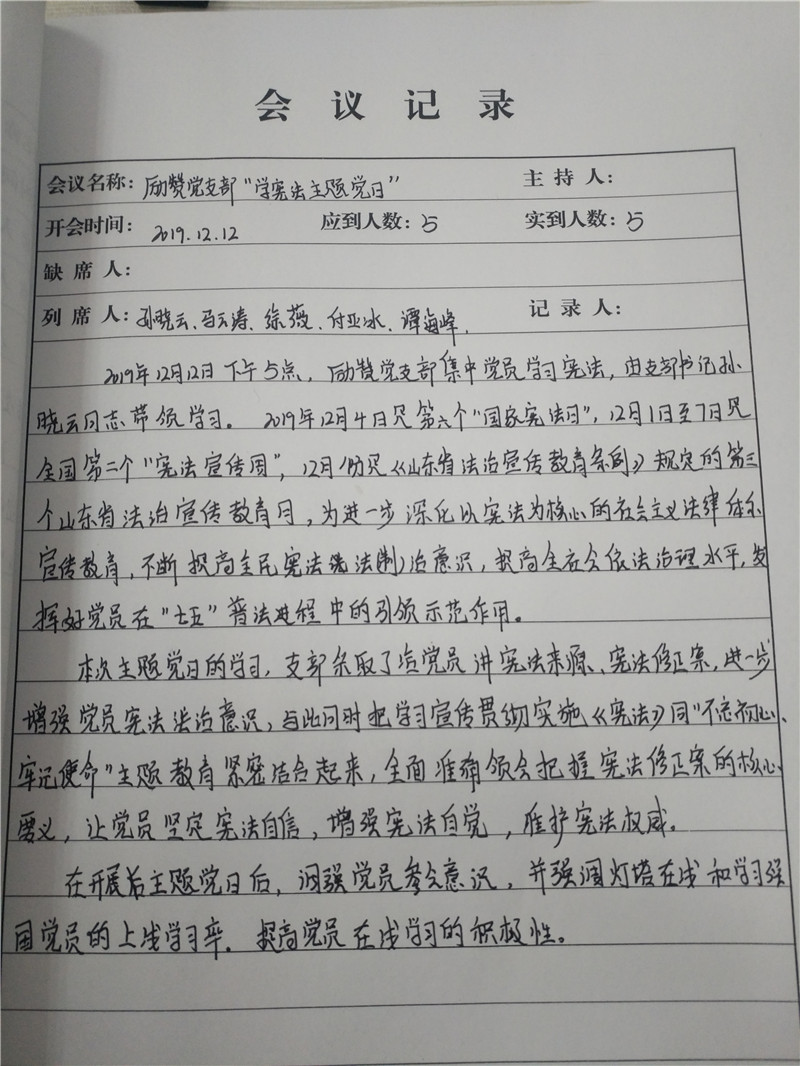 会议记录
会议名称：励赞党支部“学宪法主题党日” 主持人：
开会时间：2019.12.12 应到人数：5 实到人数：5
缺席人：
列席人：孙晓云、马云涛、徐薇、付亚冰、谭海峰. 记录人：
2019年12月12日下午5点，励赞党支部集中党员学习宪法，由支部书记孙
晓云同志带领学习。2019年12月4日是第六个“国家宪法日”，12月1日至7日是
全国第二个“宪法宣传周”，12月份是《山东省法治宣传教育条例》规定的第三
个山东省法治宣传教育月，为进一步深化以宪法为核心的社会主义法律体系
宣传教育，不断提高全民宪法法治意识，提高全社会依法治理水平，发
挥好党员在“七五”普法进程中的引领示范作用。
本次主题党日的学习，支部采取了给党员讲宪法来源、宪法修正案，进一步
增强党员宪法法治意识，与此同时把学习宣传贯彻实施《宪法》同“不忘初心、
牢记使命”主题教育紧密结合起来，全面准确领会把握宪法修正案的核心
要义，让党员坚定宪法自信，增强宪法自觉，维护宪法权威。
在开展后主题党日后，调强党员参会意识，并强调灯塔在线和学习强
国党员的上线学习率. 提高党员在线学习的积极性。